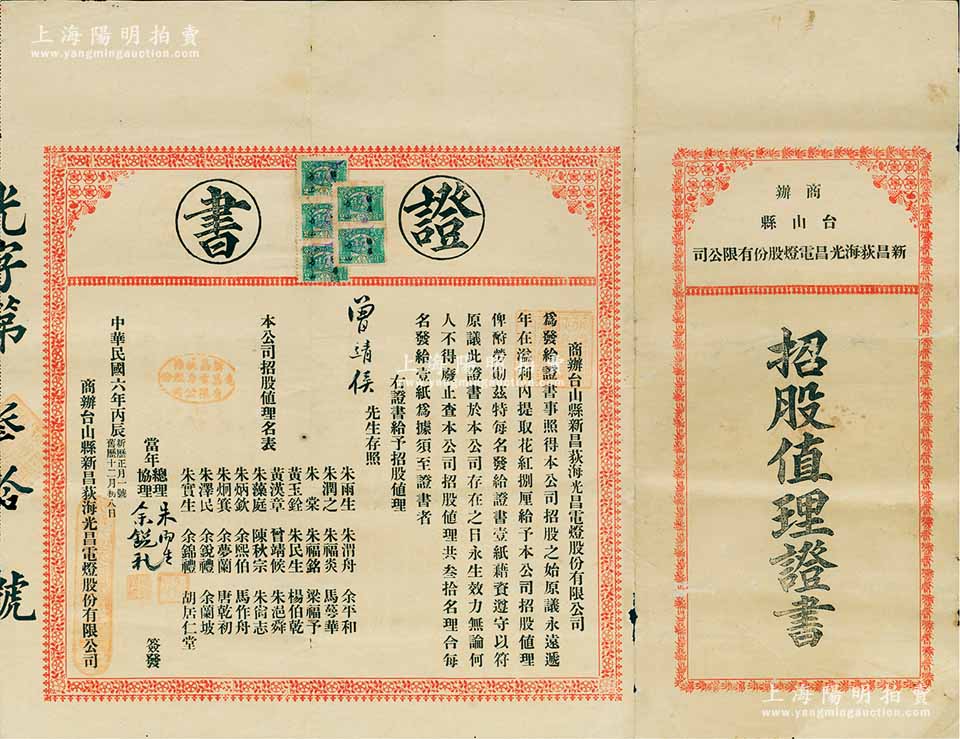 上海陽明拍賣
www.yangmingauction.com
商辦
台山縣
新昌荻海光昌電燈股份有限公司
招股值理證書
證書
商辦台山縣新昌荻海光昌電燈股份有限公司
為發給證書事照得本公司招股之始原議永遠遞
年在溢利內提取花紅捌厘給予本公司招股値理
俾酧勞勩茲特每名發給證書壹紙藉資遵守以符
原議此證書於本公司存在之日永生效力無論何
人不得廢止查本公司招股値理共叁拾名理合每
名發給壹紙為據須至證書者
右證書給予招股値理
曾靖侯 先生存照
本公司招股値理名表
朱雨生 朱渭舟 余平和
朱潤之 朱福炎 馬萼華
朱棠 朱福銘 梁福予
黃玉銓 朱民生 楊伯乾
黃漢章 曾靖候 朱浥舜
朱藻庭 陳秋宗 朱尚志
朱炳欽 余熙伯 馬作舟
朱炯箕 余夢蘭 唐乾初
朱澤民 余銳禮 余蘭坡
朱實生 余錦禮 胡居仁堂
當年總理 朱雨生
協理 余銳礼
簽發
中華民國六年丙辰新曆正月一號
舊曆十二月初八日
商辦台山縣新昌荻海光昌電燈股份有限公司
光字第叁拾號
上海陽明拍賣
www.yangmingauction.com
上海陽明拍賣
www.yangmingauction.com